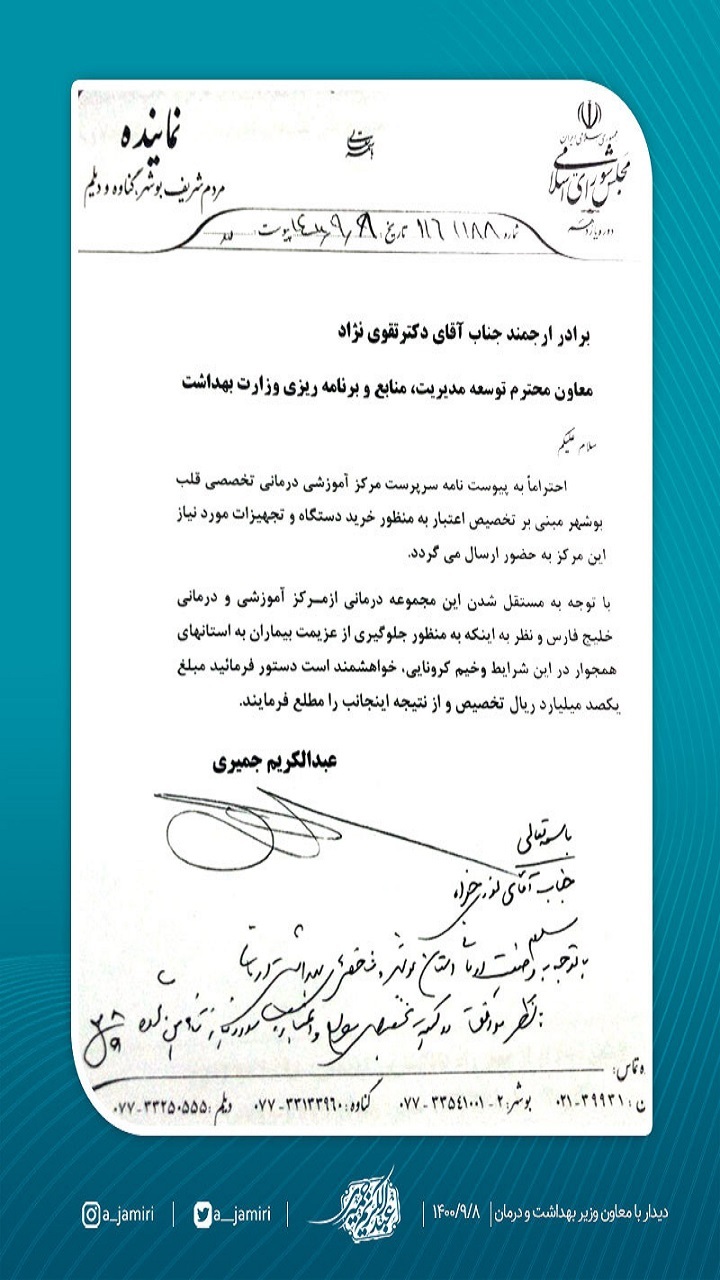 جمهوری اسلامی ایران
مجلس شورای اسلامی
دوره یازدهم
بسمه تعالی
نماینده
مردم شریف بوشهر، گناوه و دیلم
شماره ۱۱۶۱۱۸۸ تاریخ: ۱۴۰۰/۹/۸ پیوست:
برادر ارجمند جناب آقای دکترتقوی نژاد
معاون محترم توسعه مدیریت، منابع و برنامه ریزی وزارت بهداشت
سلام علیکم
احتراماً به پیوست نامه سرپرست مرکز آموزشی درمانی تخصصی قلب
بوشهر مبنی بر تخصیص اعتبار به منظور خرید دستگاه و تجهیزات مورد نیاز
این مرکز به حضور ارسال می گردد.
با توجه به مستقل شدن این مجموعه درمانی ازمرکز آموزشی و درمانی
خلیج فارس و نظر به اینکه به منظور جلوگیری از عزیمت بیماران به استانهای
همجوار در این شرایط وخیم کرونایی، خواهشمند است دستور فرمائید مبلغ
یکصد میلیارد ریال تخصیص و از نتیجه اینجانب را مطلع فرمایند.
عبدالکریم جمیری
باسمه تعالی
جناب آقای
سلام
با توجه به
ه تماس:
ن: ۳۹۹۳۱-۰۲۱ بوشهر: ۲-۳۳۵۴۱۰۰۱-۰۷۷ گناوه: ۳۳۱۳۳۹۶۰-۰۷۷ دیلم: ۳۳۲۵۰۵۵۵-۰۷۷
دیدار با معاون وزیر بهداشت و درمان | ۱۴۰۰/۹/۸ | a__jamiri | a_jamiri